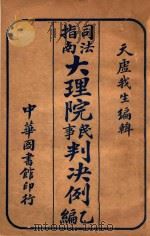 天虛我生編輯
司法指南
大理院民事判決例乙編
中華圖書館印行